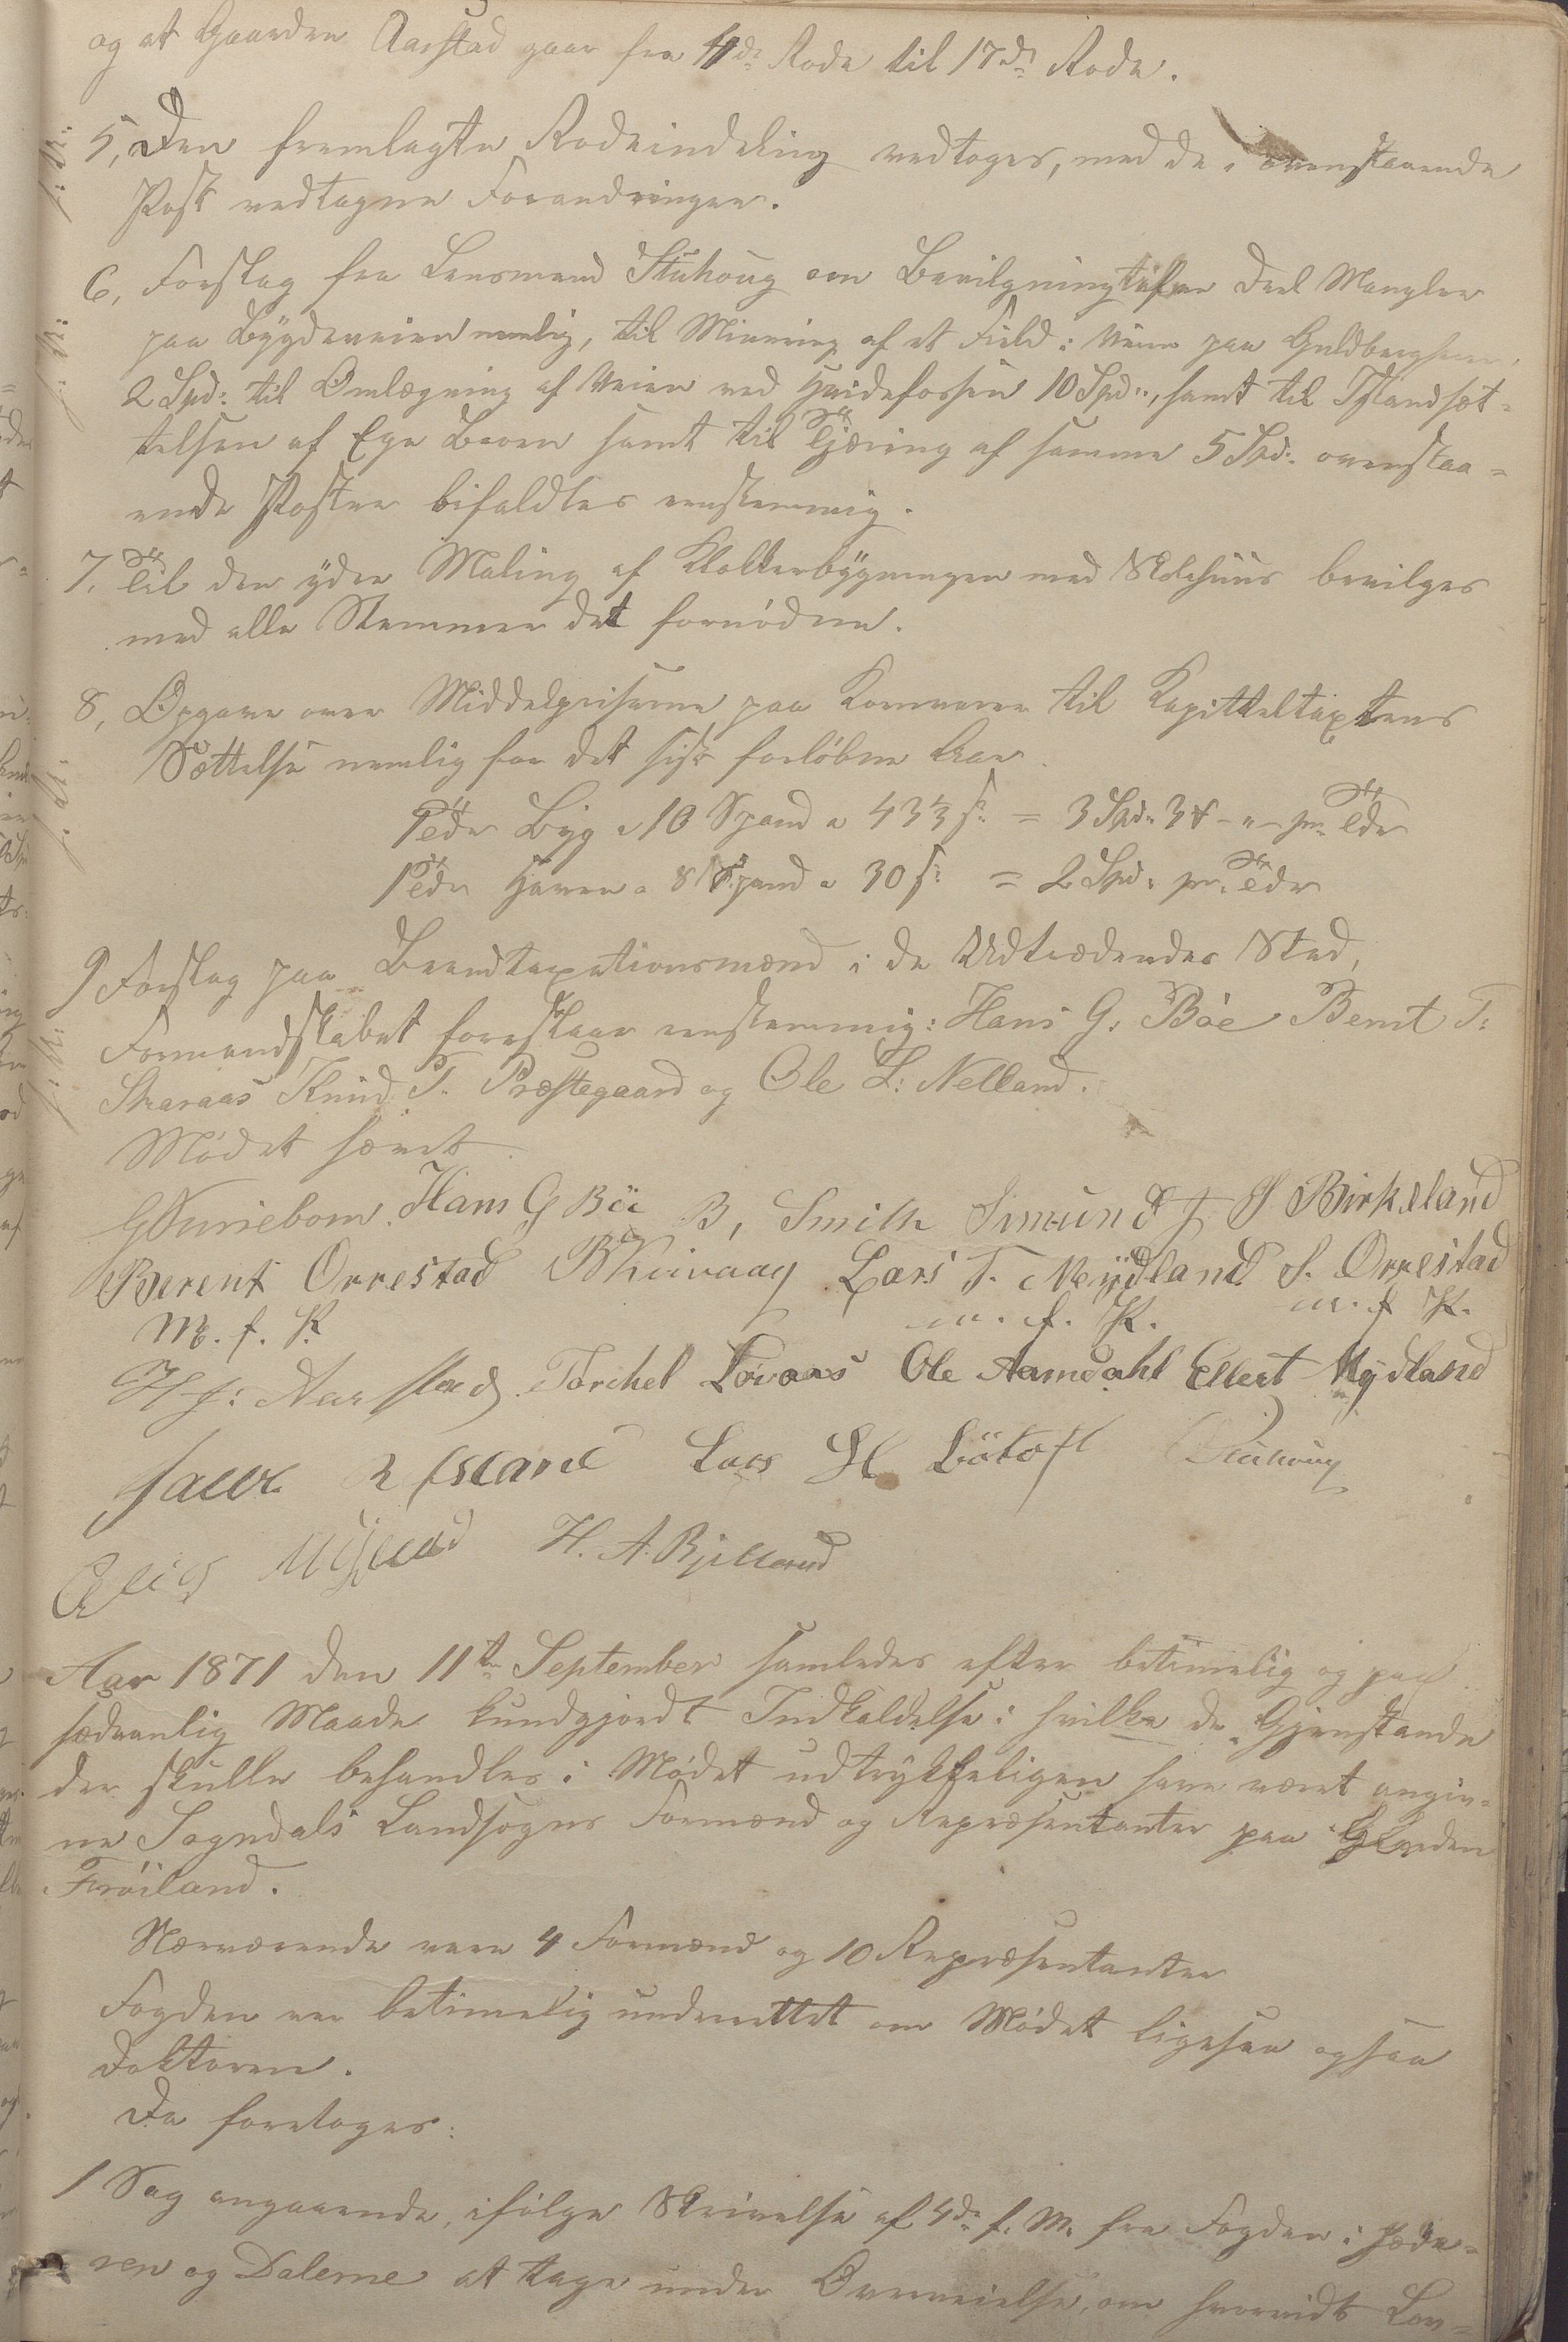 og at Gaarden Aarstad gaar fra 4de Rode til 17de Rode.
5, Den fremlagte Rodeinddeling vedtoges, med de i ovenstaaende
Post vedtagne Forandringer.
6, Forslag fra Lensmand Stuhoug om Bevilgning til en Deel Mangler
paa Bygdeveien nemlig, til Minering af et Field i Veien paa
2 Spd: til Omlægning af Veien ved Hvidefossen 10 Spd:, samt til Istandsæt-
telsen af Ege Broen samt til Tjæring af samme 5 Spd: ovenstaa-
ende Poster bifaldtes eenstemmig.
7. Til den ydre Maling af Klokkerbygningen med Skolehuus bevilges
med alle Stemmer det fornødne.
8, Opgave over Middelpriserne paa Kornvarer til Kapitteltaxtens
Sættelse nemlig for det sidst forløbne Aar.
1 Tdr Byg a 10 Spand a 43 1/3 s: = 3 Spd: 3 - " - pr: Tdr
1 Tdr Havre a 8 Spand a 30 s: = 2 Spd: pr: Tdr
9 Forslag paa Brandtaxationsmænd i de Udtrædendes Sted,
Formandskabet foreslaar eenstemmig: Hans G. Böe Bernt T:
Skaraas Knud T. Præstegaard og Ole L: Nelland.
Mødet hævet.
G Huniebom. Hans G Böe B, Smith Simund J S Birkeland
Berent Orrestad B Kirvaag Lars T. Mydland S. Orrestad
M. f. P. m. f. P. m. f. P.
H J: Aarstad. Torchel Løvaas Ole Aamdahl Ellert Mydland
Jacob R Esland Lars H Lötoft Stuhoug
Mysland H. A. Bjelland
Aar 1871 den 11te September samledes efter betimelig og paa
sædvanlig Maade kundgjordt Indkaldelse i hvilke de Gjenstande
der skulle behandles i Mødet udtrykkeligen have været angiv-
ne Sogndals Landsogns Formænd og Repræsentanter paa Gaarden
Frøiland.
Nærværende vare 4 Formænd og 10 Repræsentanter
Fogden var betimelig underrettet om Mødet ligesaa ogsaa
Doktoren.
De foretoges:
1 Sag angaaende, ifølge Skrivelse af 4de f. M. fra Fogden i Jæde-
ren og Dalerne at tage under Overveielse, om hvorvidt Lov-